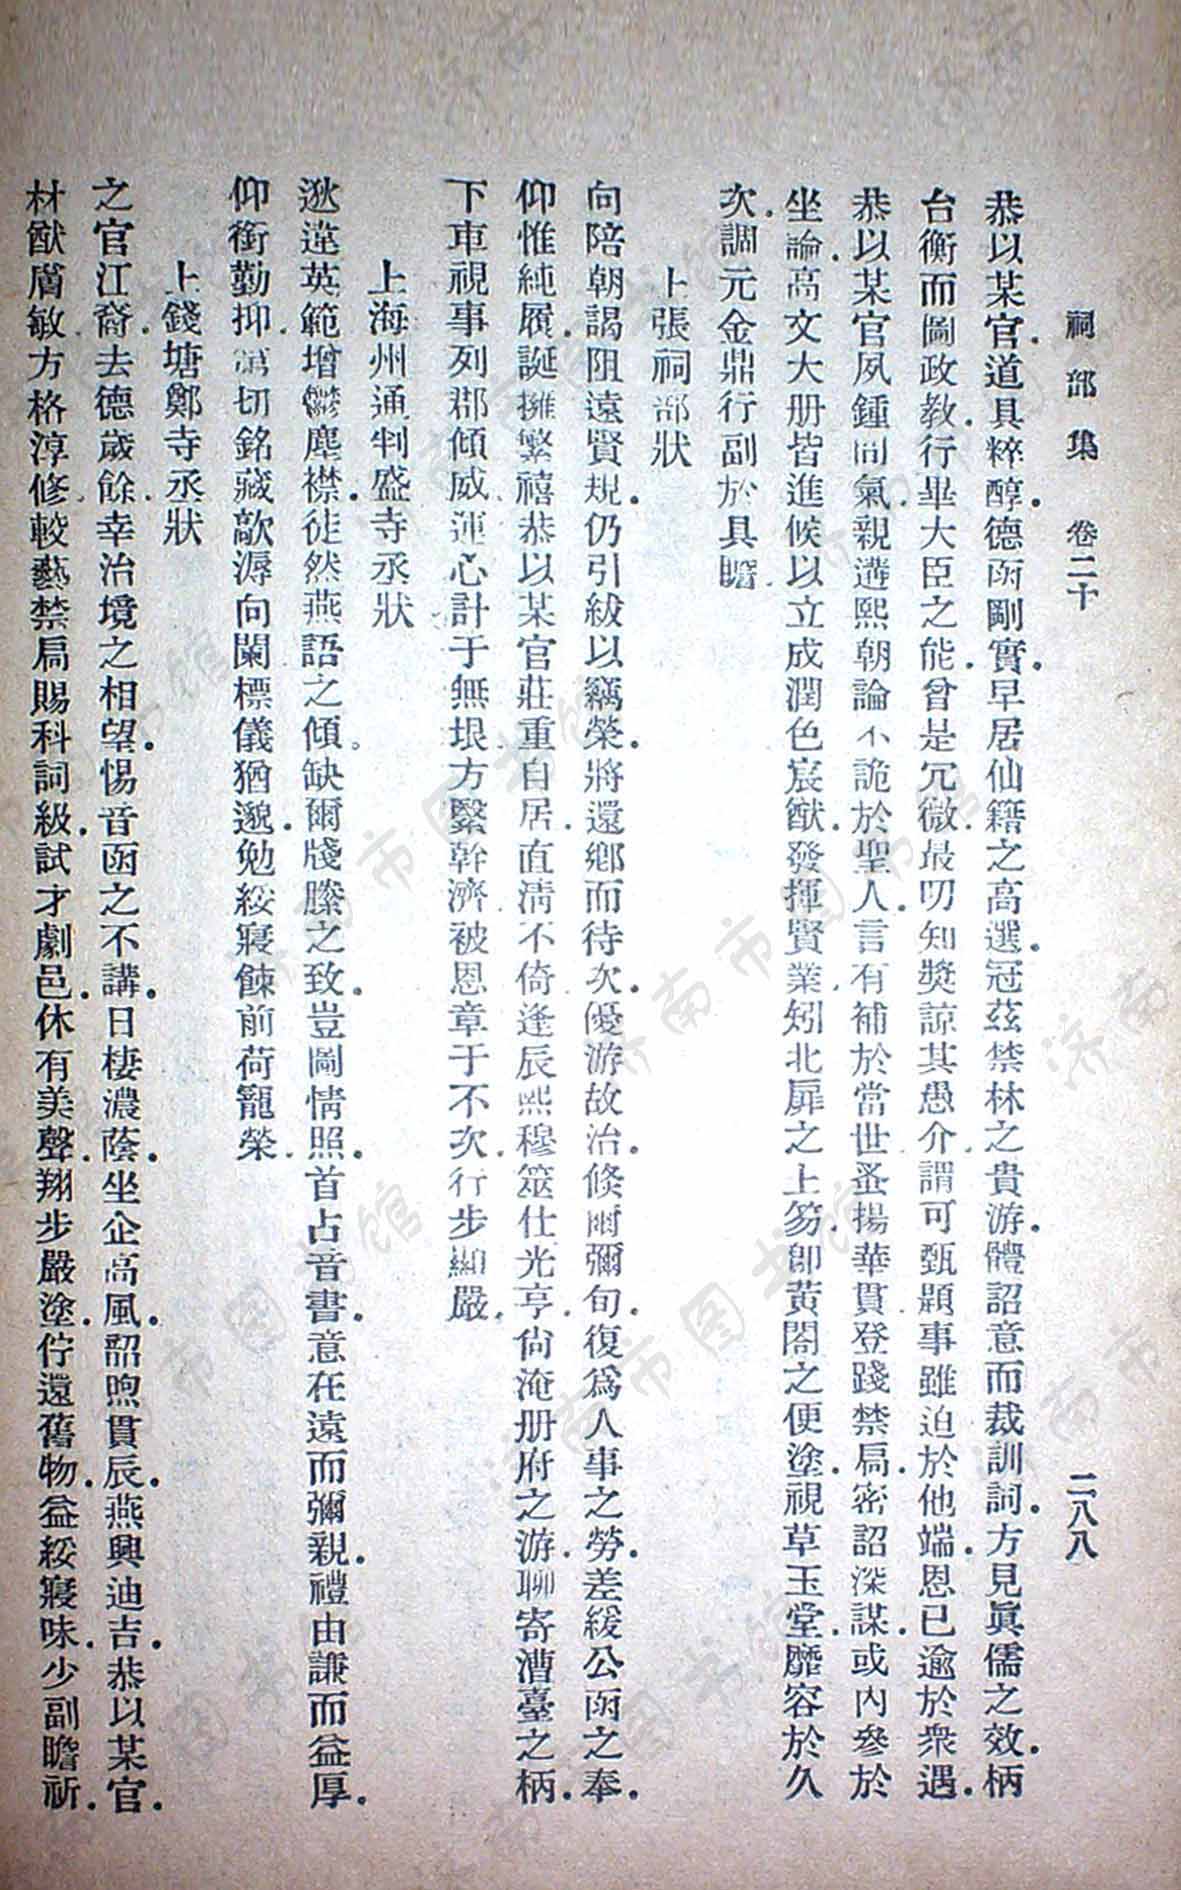 祠部集 卷二十 二八八
恭以某官.道具粹醇.德函剛實.早居仙籍之高選.冠茲禁林之貴游.體詔意而裁訓詞.方見眞儒之效.柄
台衡而圖政教.行畢大臣之能.曾是冗微.最叨知獎.諒其愚介.謂可甄題.事雖迫於他端.恩已逾於衆遇.
恭以某官夙鍾間氣.親遘熙朝.論不詭於聖人.言有補於當世.蚤揚華貫.登踐禁局.密詔深謀.或內參於
坐論.高文大册.皆進候以立成.潤色宸猷.發揮賢業.矧北扉之上笏.卽黃閤之便塗.視草玉堂.靡容於久
次.調元金鼎.行副於具瞻.
上張祠部狀
向陪朝謁.阻遠賢規.仍引紱以竊榮.將還鄉而待次.優游故治.倐爾彌旬.復爲人事之勞.差緩公函之奉.
仰惟純履.誕擁繁禧.恭以某官莊重自居.直清不倚.逢辰熙穆.筮仕光亨.尙淹册府之游.聊寄漕臺之柄.
下車視事.列郡傾威.運心計于無垠.方緊幹濟.被恩章于不次.行步顯嚴.
上海州通判盛寺丞狀
逖違英範.增鬱塵襟.徒然燕語之傾。缺爾牋縢之致.豈圖情照.首占音書.意在遠而彌親.禮由謙而益厚.
仰銜勤抑.第切銘藏.歊溽向闌.標儀猶邈.勉綏寢餗.前荷寵榮.
上錢塘鄭寺丞狀
之官江裔.去德歲餘.幸治境之相望.惕音函之不講.日棲濃蔭.坐企高風.韶煦貫辰.燕興迪吉.恭以某官.
材猷膚敏.方格淳修.較藝禁局.賜科詞級.試才劇邑.休有美聲.翔步嚴塗.佇還舊物.益綏寢味.少副瞻祈.
济南市图书馆